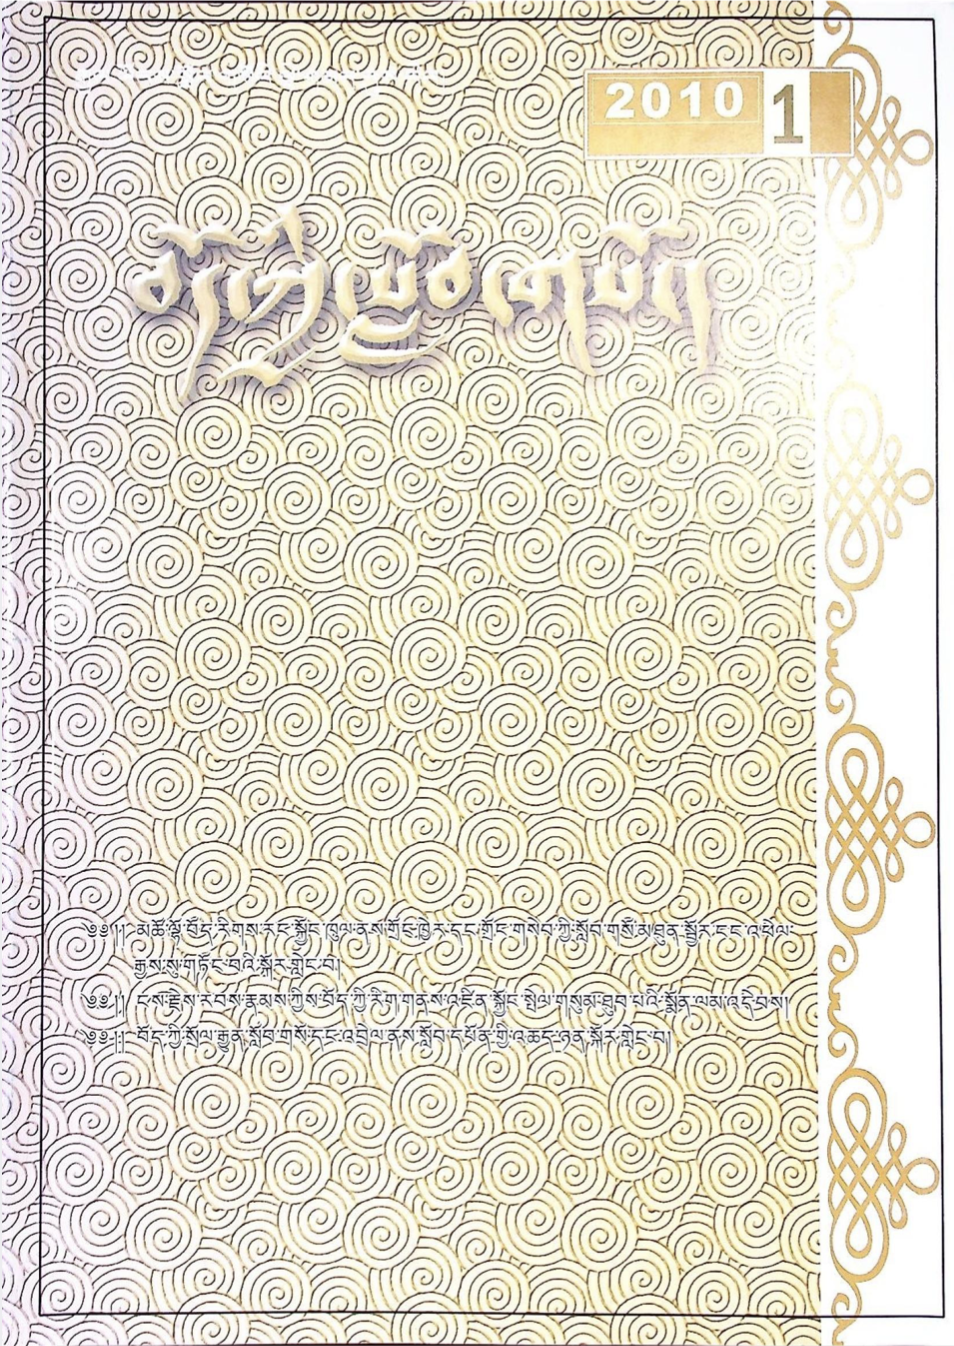 2010
1
བོད་ཀྱི་སློབ་གསོ།
༄༅།། མཚོ་ལྷོ་བོད་རིགས་རང་སྐྱོང་ཁུལ་ནས་གྲོང་ཁྱེར་དང་གྲོང་གསེབ་ཀྱི་སློབ་གསོ་མཐུན་སྦྱོར་ངང་འཕེལ་
རྒྱས་སུ་གཏོང་བའི་སྐོར་གླེང་བ།
༄༅།། ང་ས་རྗེས་རབས་རྣམས་ཀྱིས་བོད་ཀྱི་རིག་གནས་འཛིན་སྐྱོང་སྤེལ་གསུམ་ཐུབ་པའི་སྨོན་ལམ་འདེབས།
༄༅།། བོད་ཀྱི་སྲོལ་རྒྱུན་སློབ་གསོ་དང་འབྲེལ་ནས་སློབ་དཔོན་གྱི་འཆད་ཉན་སྐོར་གླེང་བ།